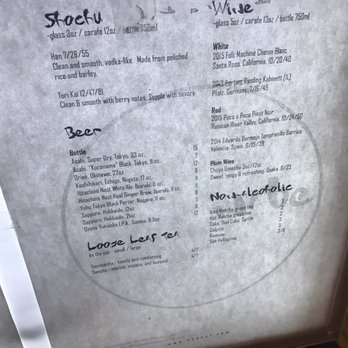 Shochu
-glass 3oz / carafe 12oz / bottle 750ml
Han 7/28/55
Clean and smooth, vodka-like. Made from polished
rice and barley.
Tori Kai 12/47/81
Clean & smooth with berry notes. Supple with savory.
Beer
Bottle
Asahi, Super Dry, Tokyo, 33 oz.
Asahi "Kuronama" Black, Tokyo, 11 oz.
Orion, Okinawa, 22oz
Koshihikari, Echigo, Niigata, 17 oz.
Hitachino Nest White Ale, Ibaraki, 11 oz.
Hitachino Nest Real Ginger Brew, Ibaraki, 11 oz.
Yoho Tokyo Black Porter, Nagano, 11 oz.
Sapporo, Hokkaido, 12oz
Sapporo, Hokkaido, 21oz
Loose Leaf Tea
by the pot - small / large
Genmaicha - toasty and comforting
Wine
-glass 5oz / carafe 13oz / bottle 750ml
White
2015 Folk Machine Chenin Blanc
Santa Rosa, California, 10/20/40
Riesling Kabinett [1L]
Pfalz, Germany,
Red
2015 Poco a Poco Pinot Noir
Russian River Valley, California,
2014 Eduardo Bermejo Tempranillo Barrica
Valencia, Spain,
Plum Wine
Choya Umeshu 3oz/12oz
Sweet, tangy & refreshing, Osaka, 8/23
Non-alcoholic
Iced Matcha green tea
Hot Matcha green tea
Coke, Diet Coke, Sprite
Calpico
Ramune
San Pellegrino